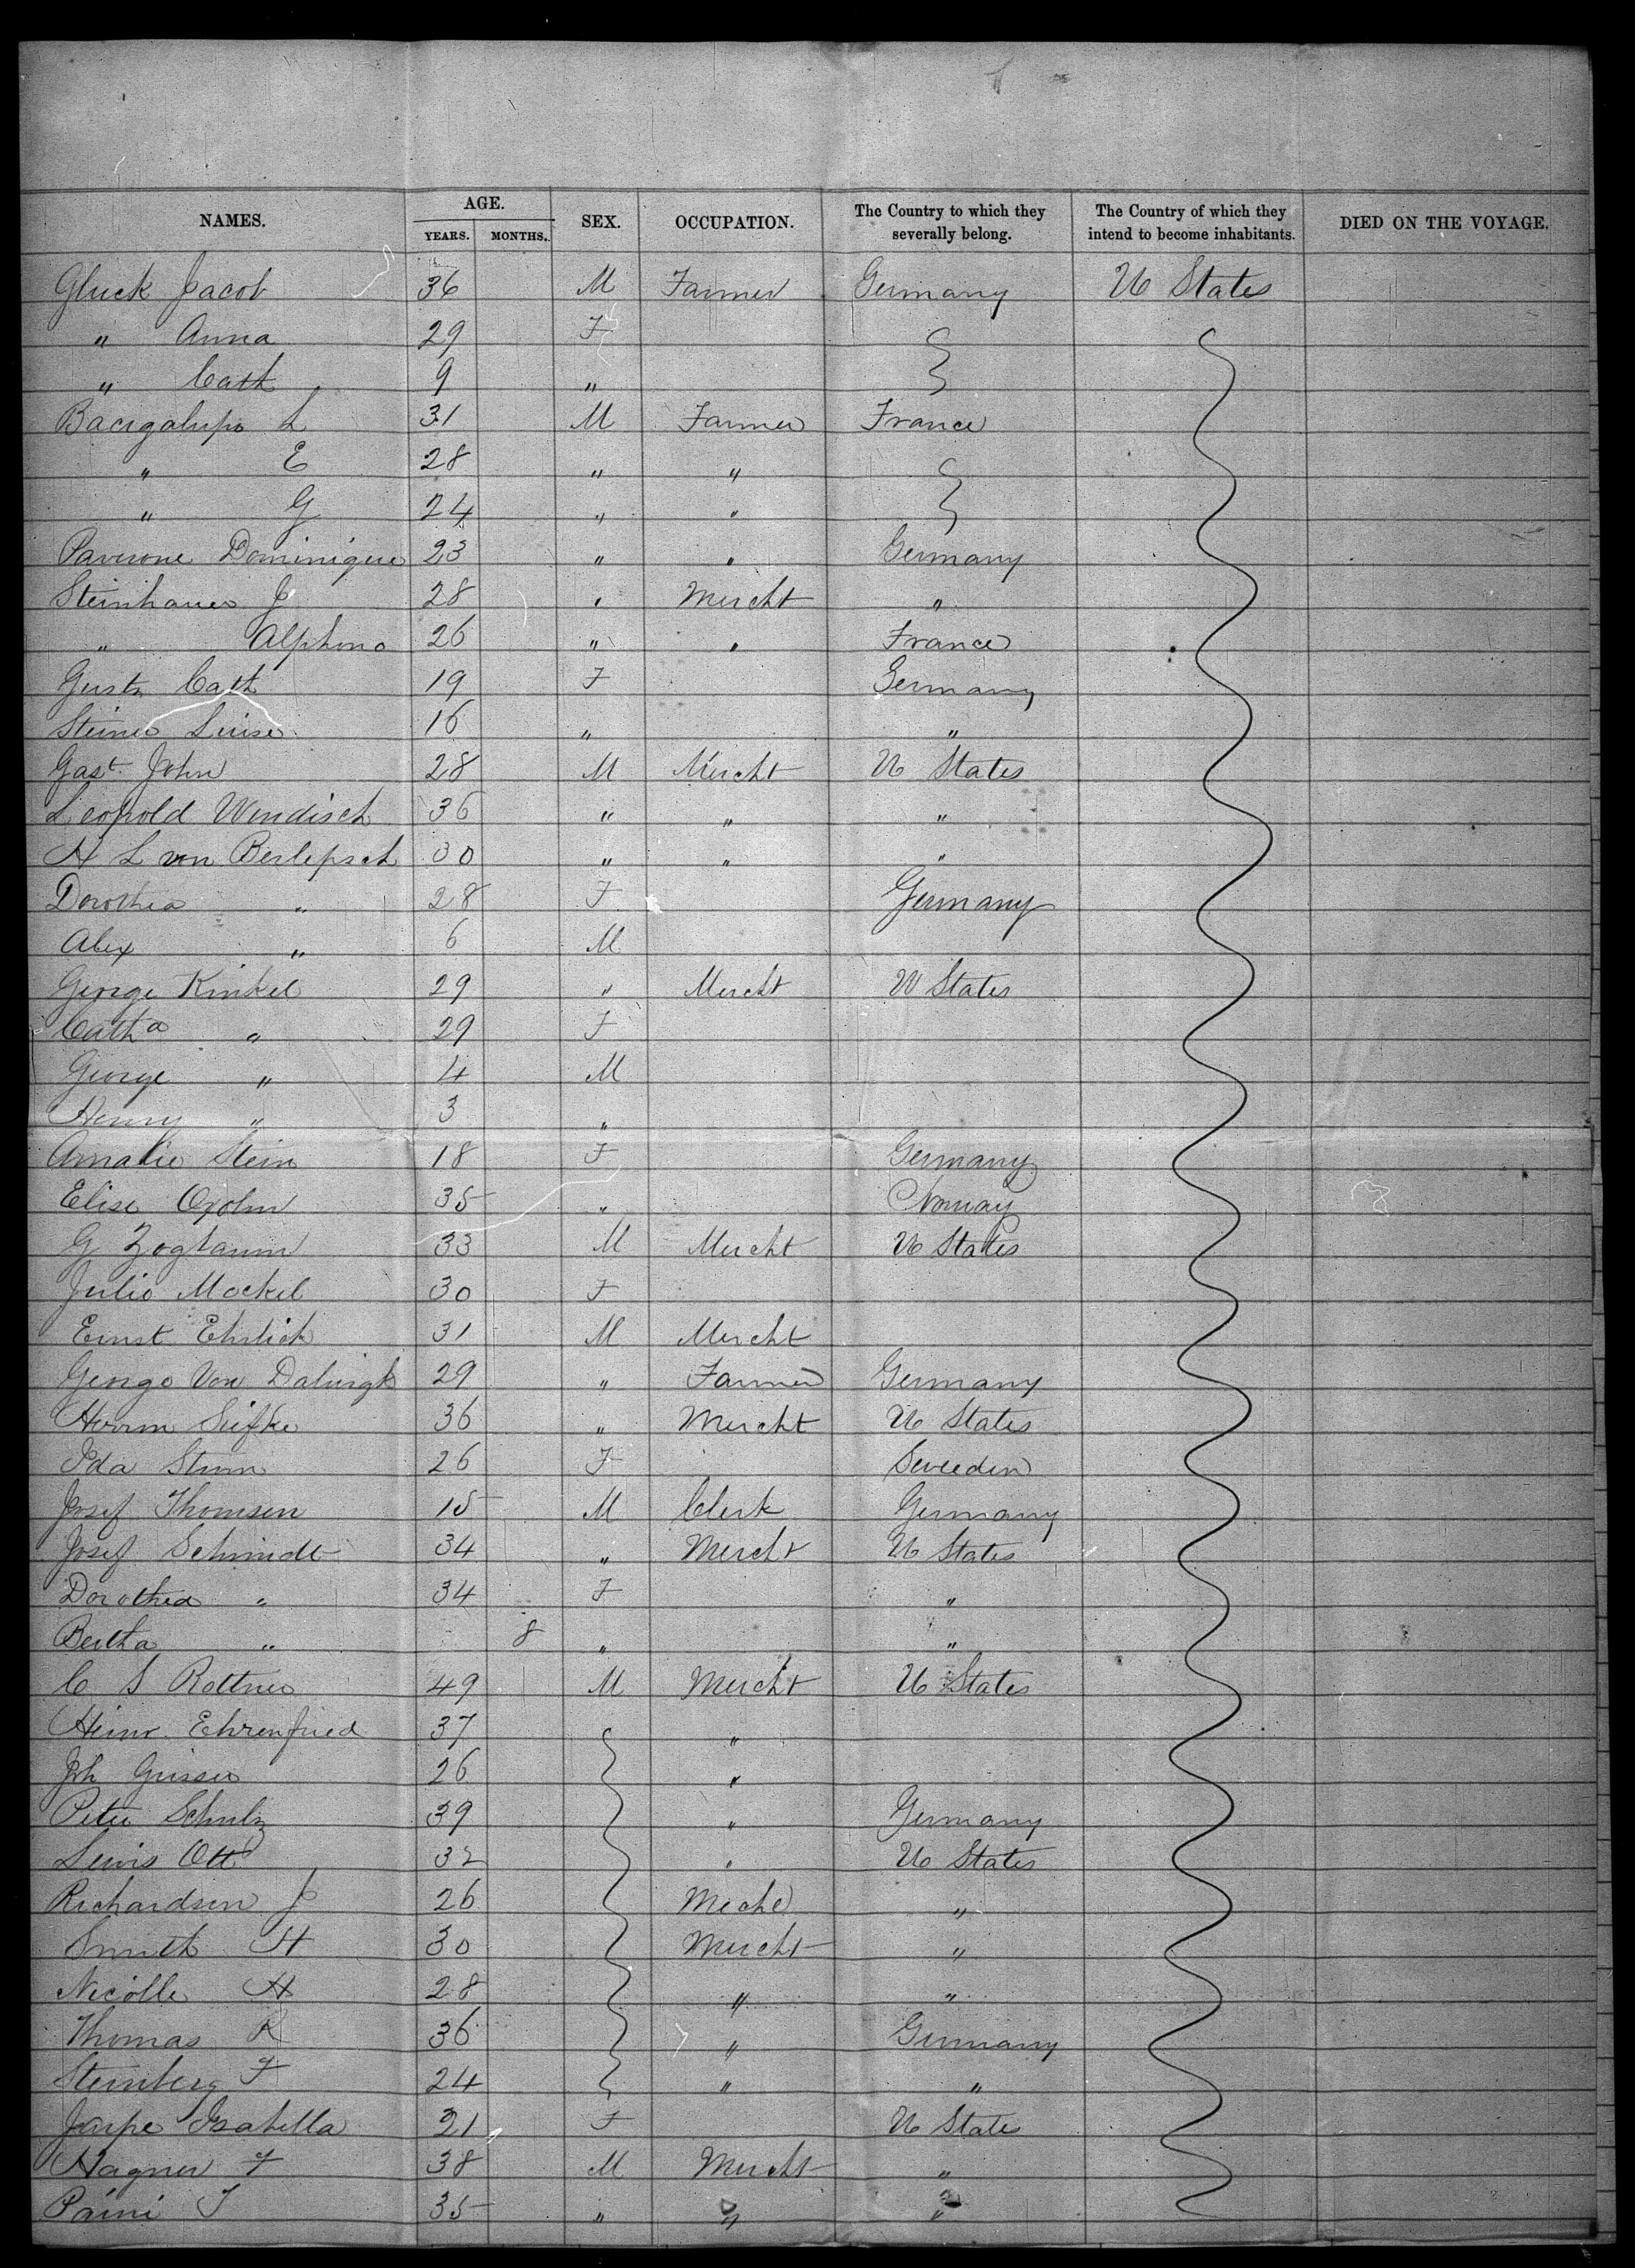 NAMES. AGE. SEX. OCCUPATION. The Country to which they severally belong. The Country of which they intend to become inhabitants. DIED ON THE VOYAGE.
YEARS. MONTHS.
Gluck Jacob 36 M Farmer Germany U States
" Anna 29 F
" Cath 9 "
Bacigalupo L 31 M Farmer France
" E 28 " "
" G 24 " "
Paverone Dominique 23 " " Germany
Steinhauer J 28 " Mercht "
" Alphons 26 " " France
Cath 19 F Germany
Steiner Luise 16 " "
Gast John 28 M Mercht U States
Leopold Wendisch 36 " " "
H L von Berlepsch 30 " " "
Dorothea " 28 F Germany
Alex " 6 M
George Kinkel 29 " Mercht U States
Catha " 29 F
George " 4 M
Henry " 3 "
Amalie Stein 18 F Germany
Elise Oxolm 35 " Norway
G Zogbaum 33 M Mercht U States
Julie Mockel 30 F
Ernst Ehrlich 31 M Mercht
George Von Dalwigk 29 " Farmer Germany
Herrm Siefke 36 " Mercht U States
Ida Sturm 26 F Sweeden
Josef Thomsen 15 M Clerk Germany
Josef Schmidt 34 " Mercht U States
Dorothea " 34 F "
Bertha " 8 " "
C S Rottner 49 M Mercht U States
Heinr Ehrenfried 37 "
Joh Griser 26 "
Peter Schulz 39 " Germany
Lewis Ott 32 " U States
Richardson J 26 Meche "
Smith H 30 Mercht "
Nicolle H 28 " "
Thomas R 36 " Germany
Steinberg F 24 " "
Jaype Isabella 21 F U State
Hagner F 38 M Mercht "
Paini J 35 " " "